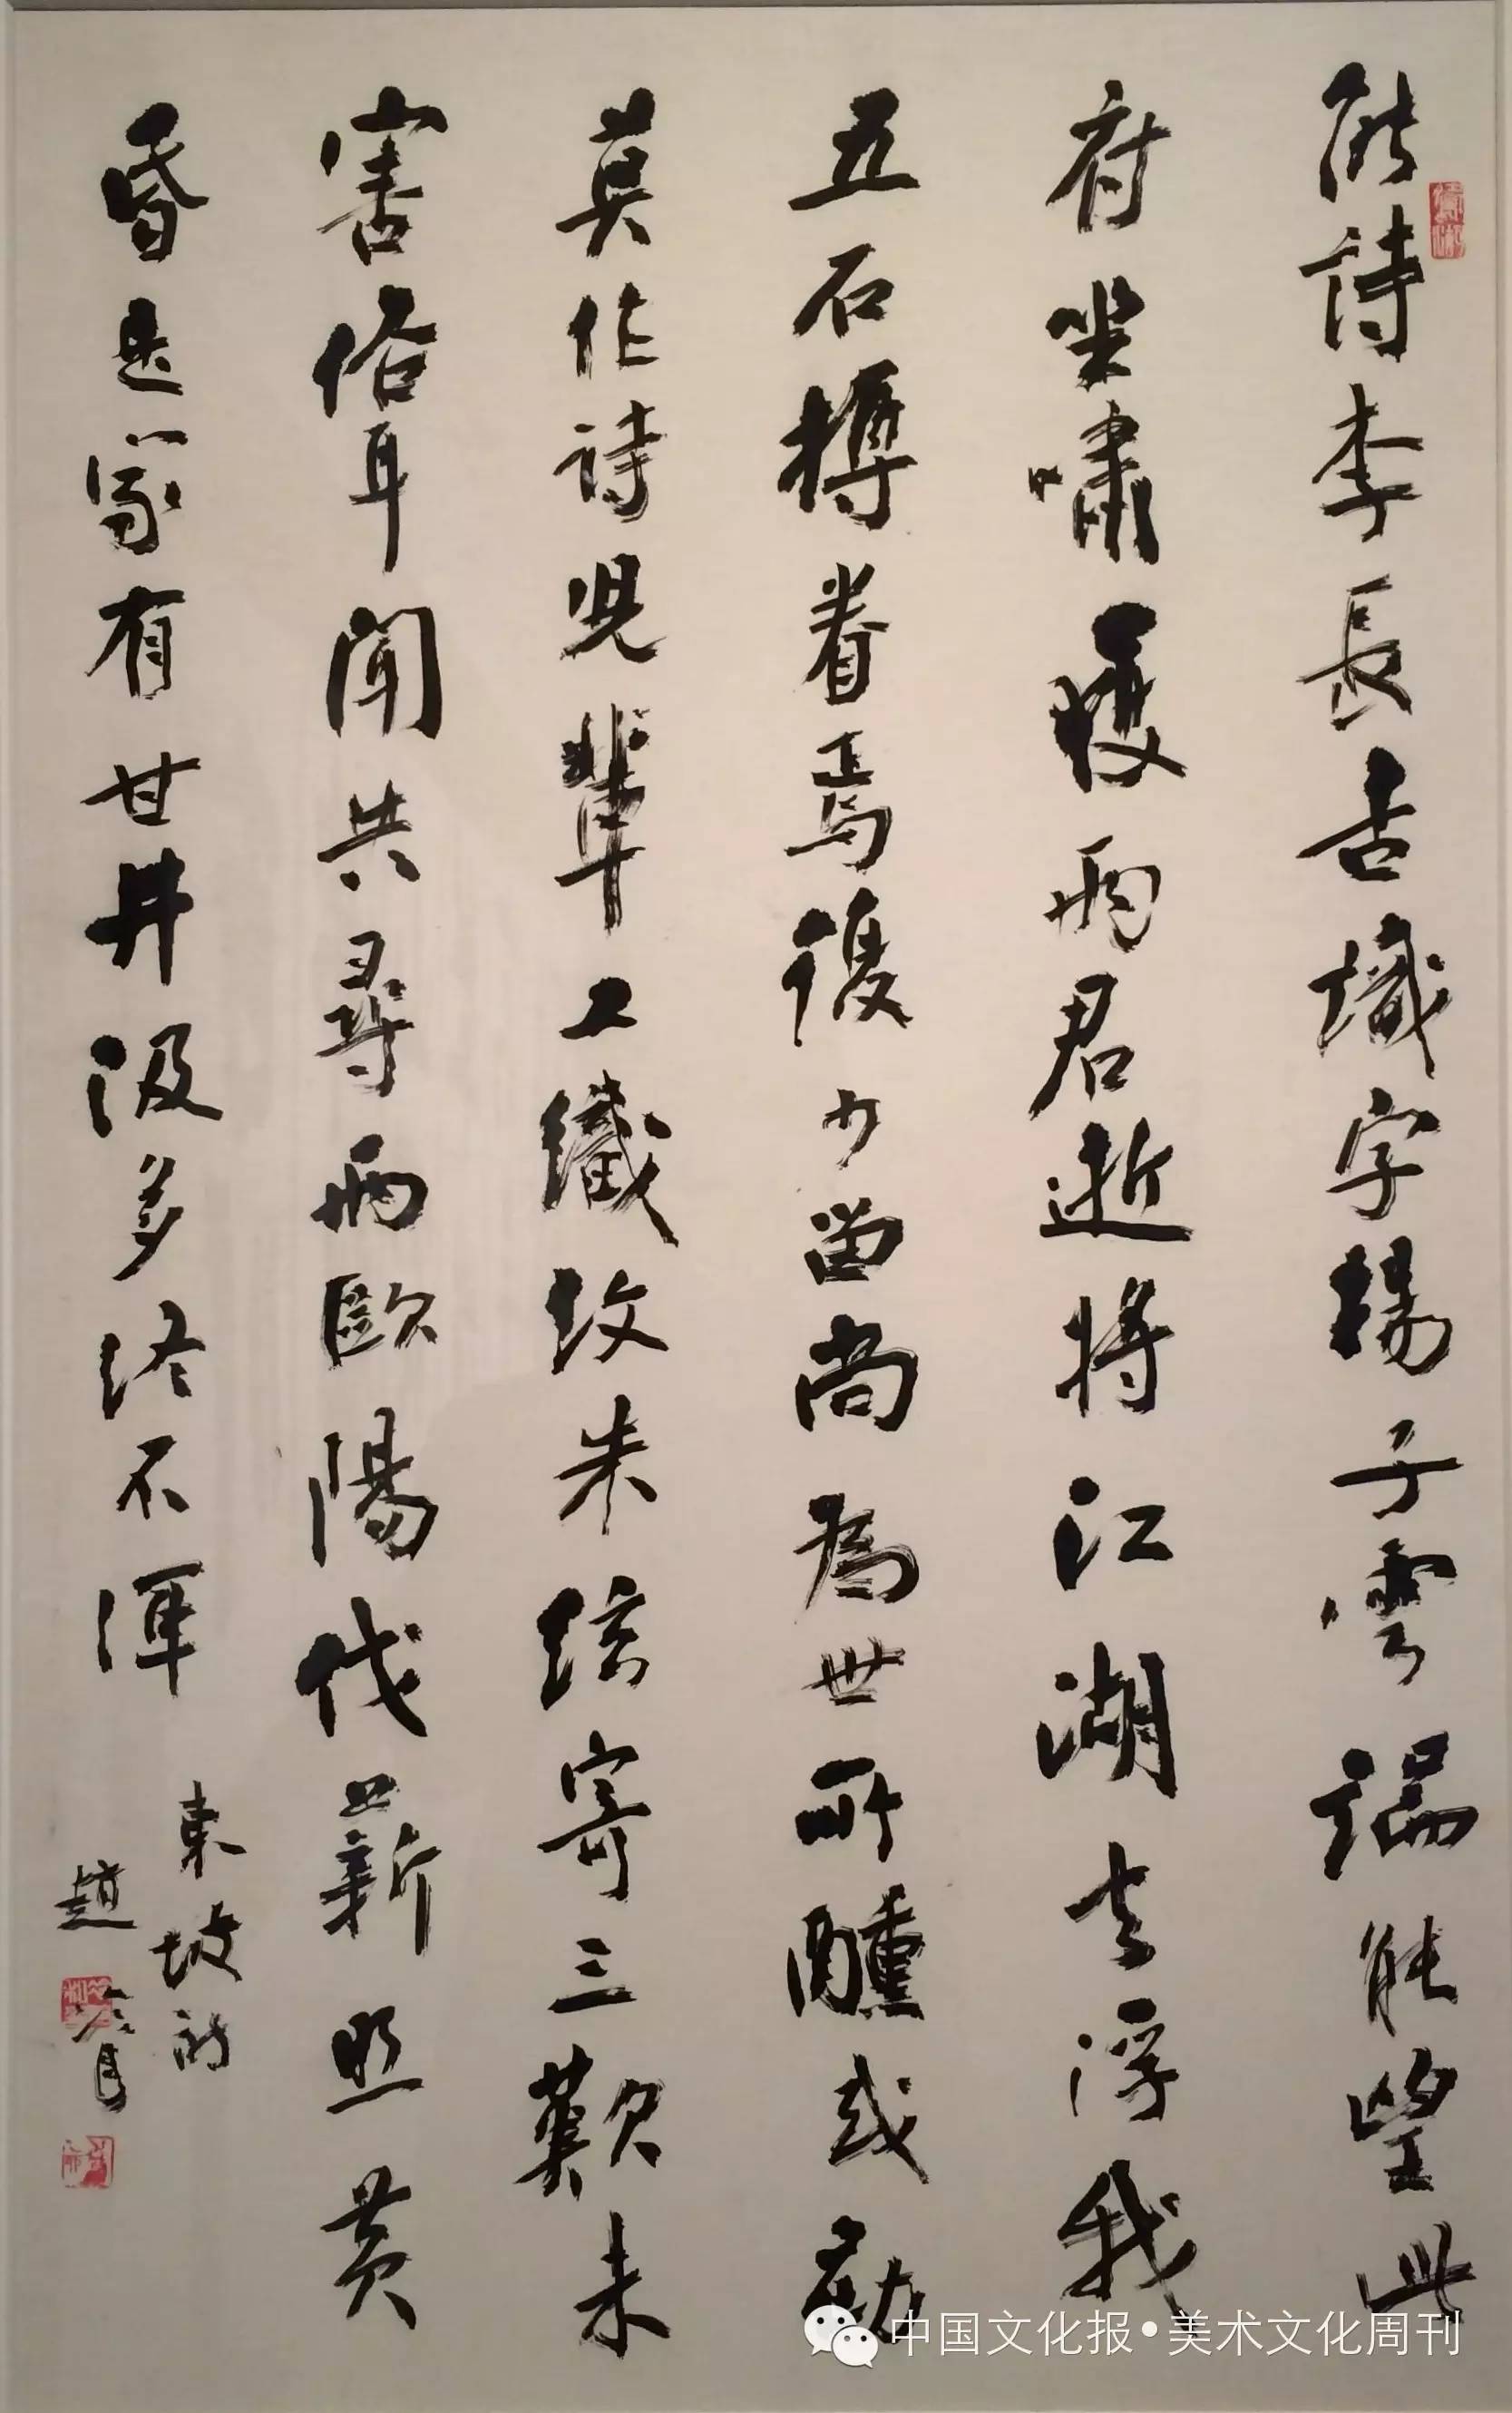 能詩李長吉識字楊子雲端能望此
府坐嘯獲兩君逝將江湖去浮我
五石樽眷焉復少留尚為世所醺或勸
莫作詩兒輩工織紋朱絃寄三歎未
害俗耳聞共尋兩歐陽伐薪照黃
昏是家有甘井汲多終不渾
東坡詩
趙冷月
中国文化报•美术文化周刊